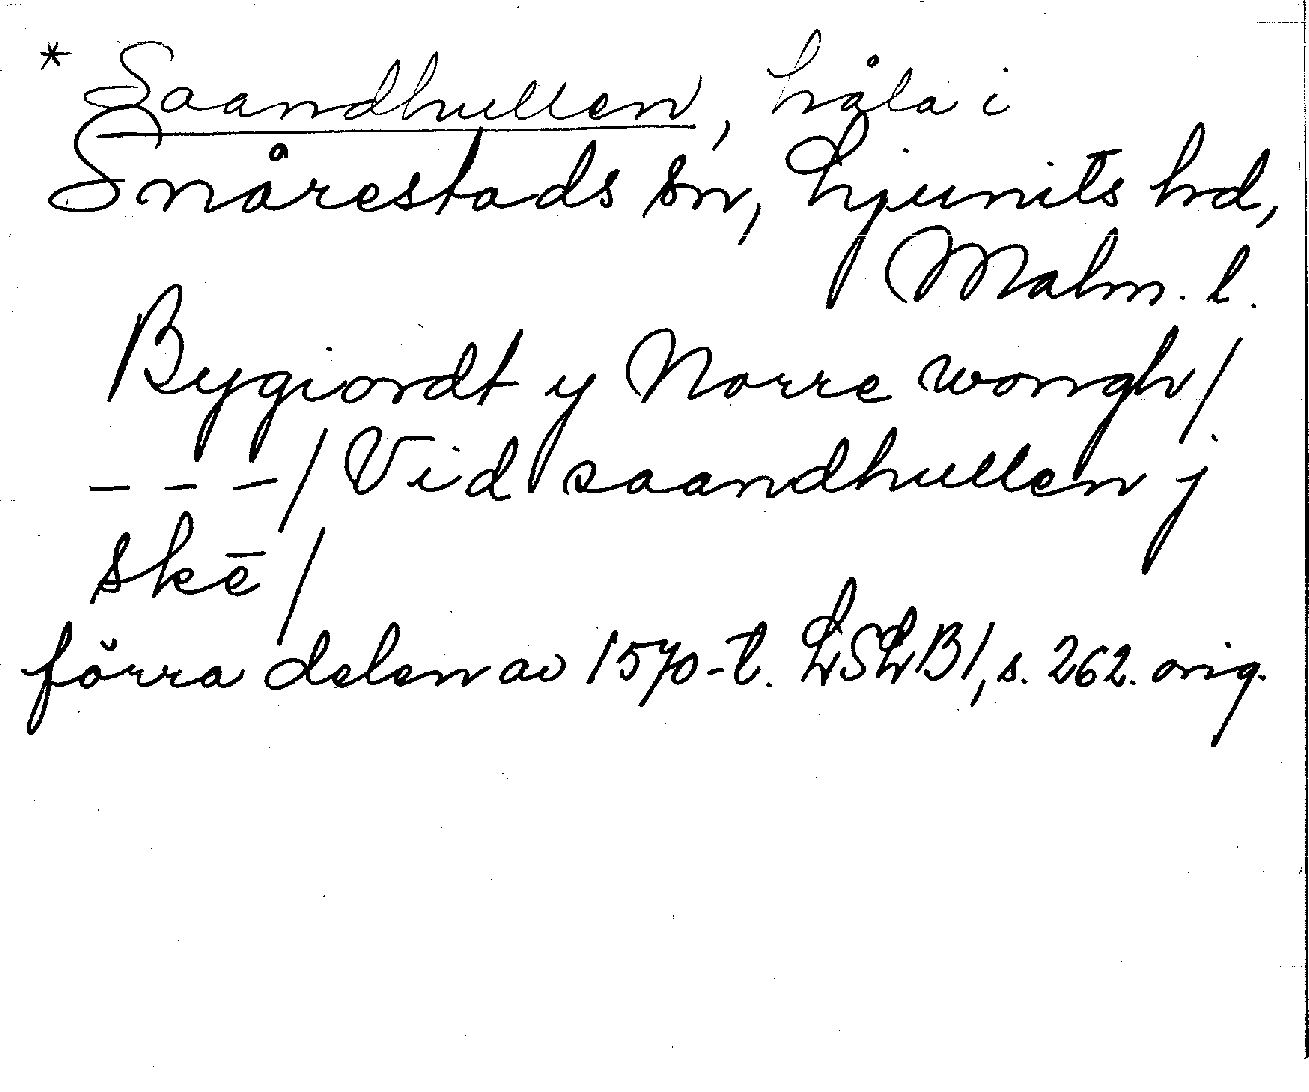 * Saandhullen, håla i
Snårestads sn, Ljunits hd,
Malm. l.
Bygiordt y Norre wongh/
---/ Vid saandhullen j
skē/
förra delen av 1570-t. LSLB1, s. 262. orig.